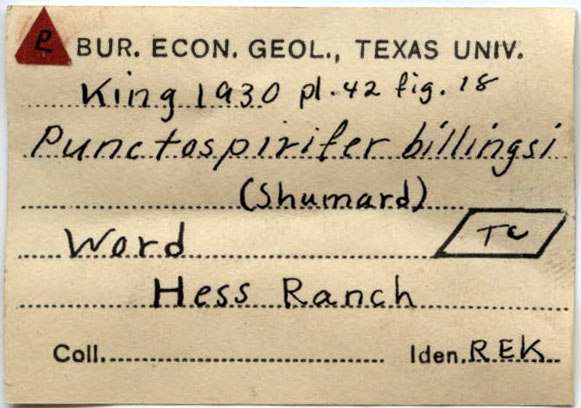 P BUR. ECON. GEOL., TEXAS UNIV.
King 1930 pl. 42 fig. 18
Punctospirifer billingsi
(Shumard)
Word TC
Hess Ranch
Coll. Iden. REK